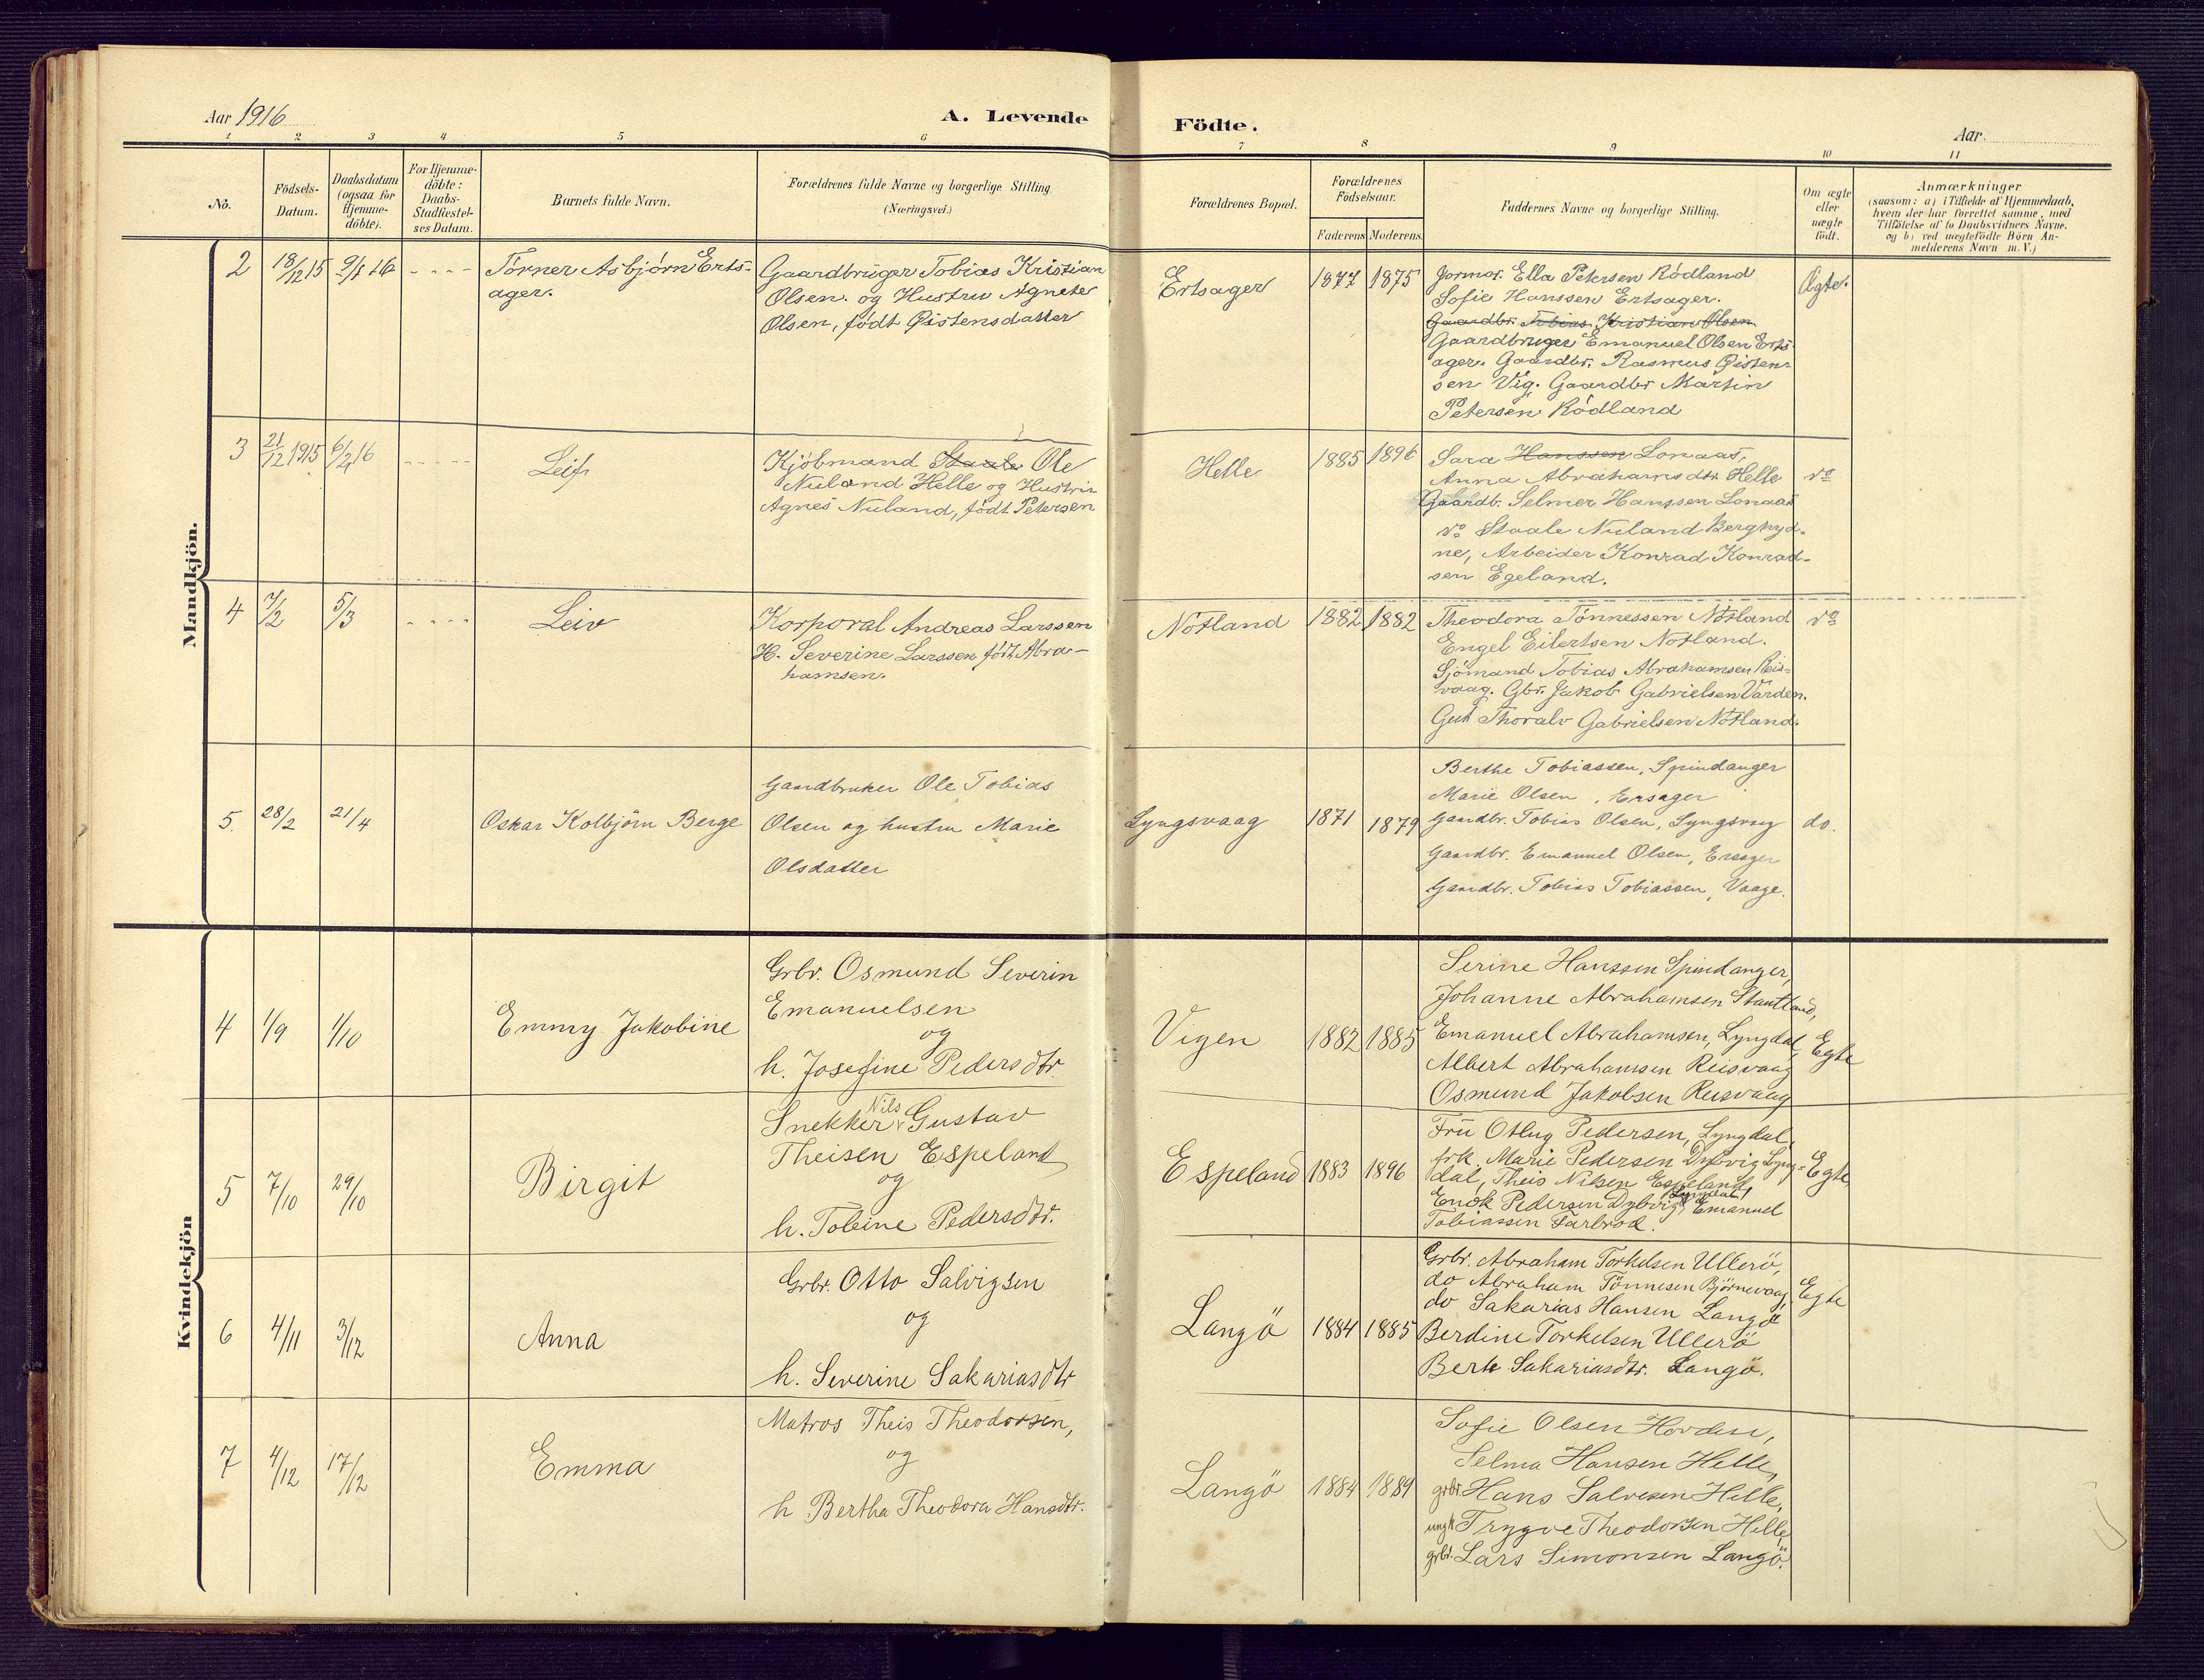 Aar 1916
A. Levende
Födte.
Aar
1 2 3 4 5 6 7 8 9 10 11
No.
Födsels-
Datum.
Daabsdatum
(ogsaa for
Hjemme-
döbte).
For Hjemme-
döbte:
Daabs-
Stadfæstel-
ses Datum.
Barnets fulde Navn.
Forældrenes fulde Navne og borgerlige Stilling
(Næringsvei.)
Forældrenes Bopæl.
Forældrenes
Födselsaar.
Faderens
Moderens
Faddernes Navne og borgerlige Stilling.
Om ægte
eller
uægte
födt.
Anmærkninger
(saasom: a) i Tilfælde af Hjemmedaab,
hvem der har forrettet samme, med
Tilföielse af to Daabsvidners Navne.
og b) ved uægtefödte Börn An-
melderens Navn m. V.)
Mandkjön.
2
18/12 15
9/1 16
- - - -
Tørner Asbjørn Erts-
ager.
Gaardbruger Tobias Kristian
Olsen. og Hustru Agnete
Olsen, født Øistensdatter
Ertsager
1877
1875
Jormor. Ella Petersen Rödland
Sofie Hanssen Ertsager.
Gaardbr. Tobias Kristian Olsen
Gaardbruger Emanuel Olsen Erts-
ager. Gaardbr. Rasmus Øisten-
sen Vig. Gaardbr Martin
Petersen Rödland
Ægte.
3
21/12 1915
6/2 16
- - - - -
Leif
Kjöbmand Staale Ole
Nuland Helle og Hustru
Agnes Nuland, födt Petersen
Helle
1885
1896
Sara Hanssen Lomaas,
Anna Abrahamsdtr Helle
Gaardb. Selmer Hanssen Lomaas
do Staale Nuland Berghyd-
ne, Arbeider Konrad Konrad-
sen Egeland.
do
4
7/2
5/3
- - - -
Leiv
Korporal Andreas Larssen
H. Severine Larssen født Abra-
hamsen.
Notland
1882
1882
Theodora Tönnessen Notland
Engel Eilertsen Notland.
Sjömand Tobias Abrahamsen Reis-
vaag. Gbr. Jakob Gabrielsen Varden.
Gut Thoralv Gabrielsen Notland.
do
5.
28/2
21/4
Oskar Kolbjörn Berge
Gaardbruker Ole Tobias
Olsen og hustru Marie
Olsdatter
Lyngsvaag
1871
1879
Berthe Tobiassen, Spindanger
Marie Olsen, Ersager
Gaardbr. Tobias Olsen, Lyngsvag
Gaardbr. Emanuel Olsen, Ersager
Gaardbr. Tobias Tobiassen, Vaage.
do.
Kvindekjön
4
1/9
1/10
Emmy Jakobine
Grbr. Osmund Severin
Emanuelsen
og
h. Josefine Pedersdtr.
Vigen
1882
1885
Serine Hanssen Spindanger,
Johanne Abrahamsen Stautland,
Emanuel Abrahamsen, Lyngdal,
Albert Abrahamsen Reisvaag
Osmund Jakobsen Reisvaag
Egte
5
7/10
29/10
Birgit
Snekker Nils Gustav
Theisen Espeland
og
h. Tobine Pedersdtr.
Espeland
1883
1896
Fru Otlug Pedersen, Lyngdal,
frk Marie Pedersen Dybvig Lyng-
dal, Theis Nilsen Espeland,
Enok Pedersen Dybvig, Lyngdal, Emanuel
Tobiassen Farbrod.
Egte
6
4/11
3/12
Anna
Grbr. Otto Salvigsen
og
h. Severine Sakariasdtr
Langö
1884
1885
Grbr. Abraham Torkelsen Ullerö,
do Abraham Tönnesen Björnevaag,
do Sakarias Hansen Langö
Berdine Torkelsen Ullerö
Berte Sakariasdtr. Langö.
Egte
7
4/12
17/12
Emma
Matros Theis Theodorsen,
og
h Bertha Theodora Hansdtr.
Langö
1884
1889
Sofie Olsen Hovden,
Selma Hansen Helle,
grbr. Hans Salvesen Helle,
ungk Trygve Theodorsen Helle
grbr. Lars Simonsen Langö.